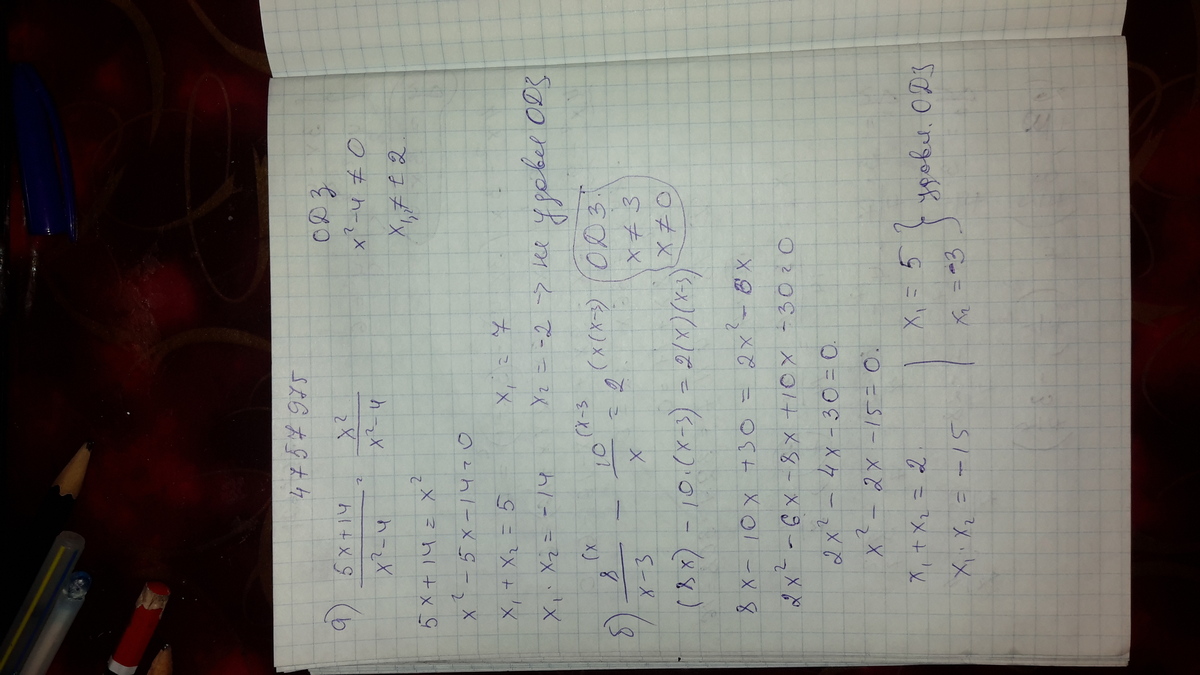 4757975
а) (5x+14)/(x²-4) = x²/(x²-4)
ОДЗ
x²-4≠0
x₁,₂≠±2
5x+14=x²
x²-5x-14=0
x₁+x₂=5
x₁·x₂=-14
x₁=7
x₂=-2 → не удовл ОДЗ
б) 8/(x-3) (x - 10/x (x-3 = 2 (x(x-3)
ОДЗ.
x≠3
x≠0
(8x)-10·(x-3)=2(x)(x-3)
8x-10x+30=2x²-6x
2x²-6x-8x+10x-30=0
2x²-4x-30=0.
x²-2x-15=0.
x₁+x₂=2.
x₁·x₂=-15
x₁=5
x₂=-3
} удовл. ОДЗ